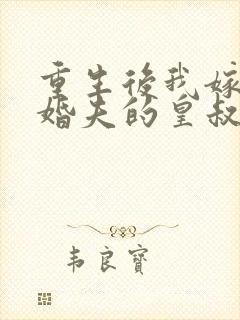 重生後我嫁
婚夫的皇叔
韦良寶